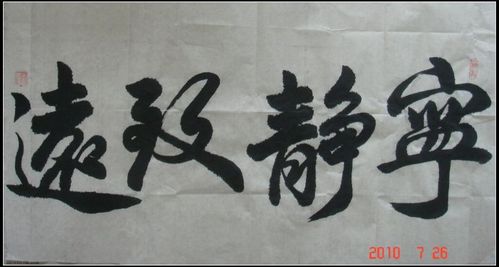 寧静致遠
2010 7 26